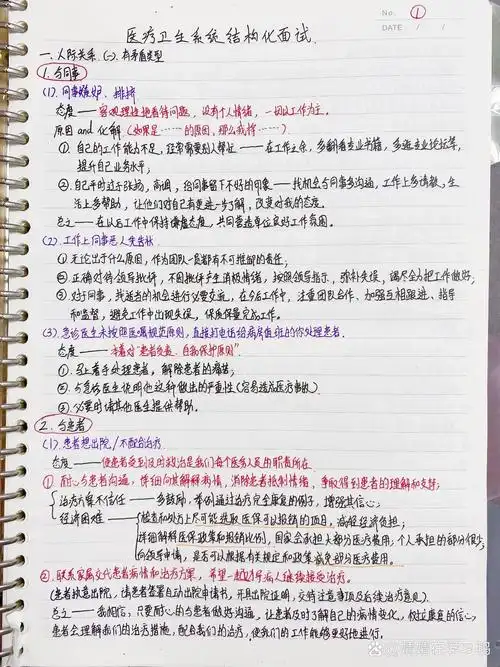 No. ①
DATE / /
医疗卫生系统结构化面试.
一、人际关系. (一). 有矛盾类型
1. 与同事
(1). 同事嫉妒、排挤
态度——客观理性地看待问题，没有个人情绪，一切以工作为主。
原因 and 化解 (如果是……的原因，那么我将……)
① 自己的工作能力不足，经常需要别人帮忙——在工作之余，多翻看专业书籍，多逛专业论坛等，
提升自己业务水平；
② 自己平时过于张扬，高调，给同事留下不好的印象——找机会与同事多沟通，工作上多请教，生
活上多帮助，让他们对自己有更进一步了解，改变对我的态度。
总之——在以后工作中保持谦虚态度，共同营造单位良好工作氛围。
(2). 工作上同事恶人先告状
① 无论出于什么原因，作为团队一员都有不可推卸的责任；
② 正确对待领导批评，不因批评产生消极情绪，按照领导指示，弥补失误，竭尽全力把工作做好；
③ 对于同事，我适当的机会进行必要交流，在今后工作中，注重团队合作、加强互相跟进、指导
和监督，避免工作中出现失误，保质保量完成工作。
(3) 急诊医生未按照医嘱规范原则，直接打电话给病房值班的你处理患者。
态度——本着对"患者负责、自我保护原则"
① 马上着手处理患者，解除患者的痛苦；
② 与急诊医生说明他这种做法的严重性(容易造成医疗事故)
③ 必要时请其他医生提供帮助。
2. 与患者
(1). 患者想出院/不配合治疗
态度——使患者受到及时救治是我们每个医务人员的职责所在
① 耐心与患者沟通，详细向其解释病情，消除患者抵制情绪，争取得到患者的理解和支持；
治疗方案不信任——多鼓励，举例通过治疗完全康复的例子，增强其信心；
经济困难——检查和处方上尽可能选取医保可以报销的项目，减轻经济负担；
详细解释医保政策和报销比例，国家会承担大部分医疗费用，个人承担的部分很少；
向领导申请，是否可以根据有关规定和政策减免部分医疗费用。
② 联系家属交代患者病情和治疗方案，希望一起劝导病人继续接受治疗。
(患者执意出院，请患者签署自动出院申请书，开具出院证明，交待注意事项及后续治疗意见).
总之——我相信，只要耐心的与患者做好沟通，让患者及时了解自己的病情变化，树立康复的信心，
患者会理解我们的治疗措施，配合我们的治疗，使我们的工作能够更好地进行.